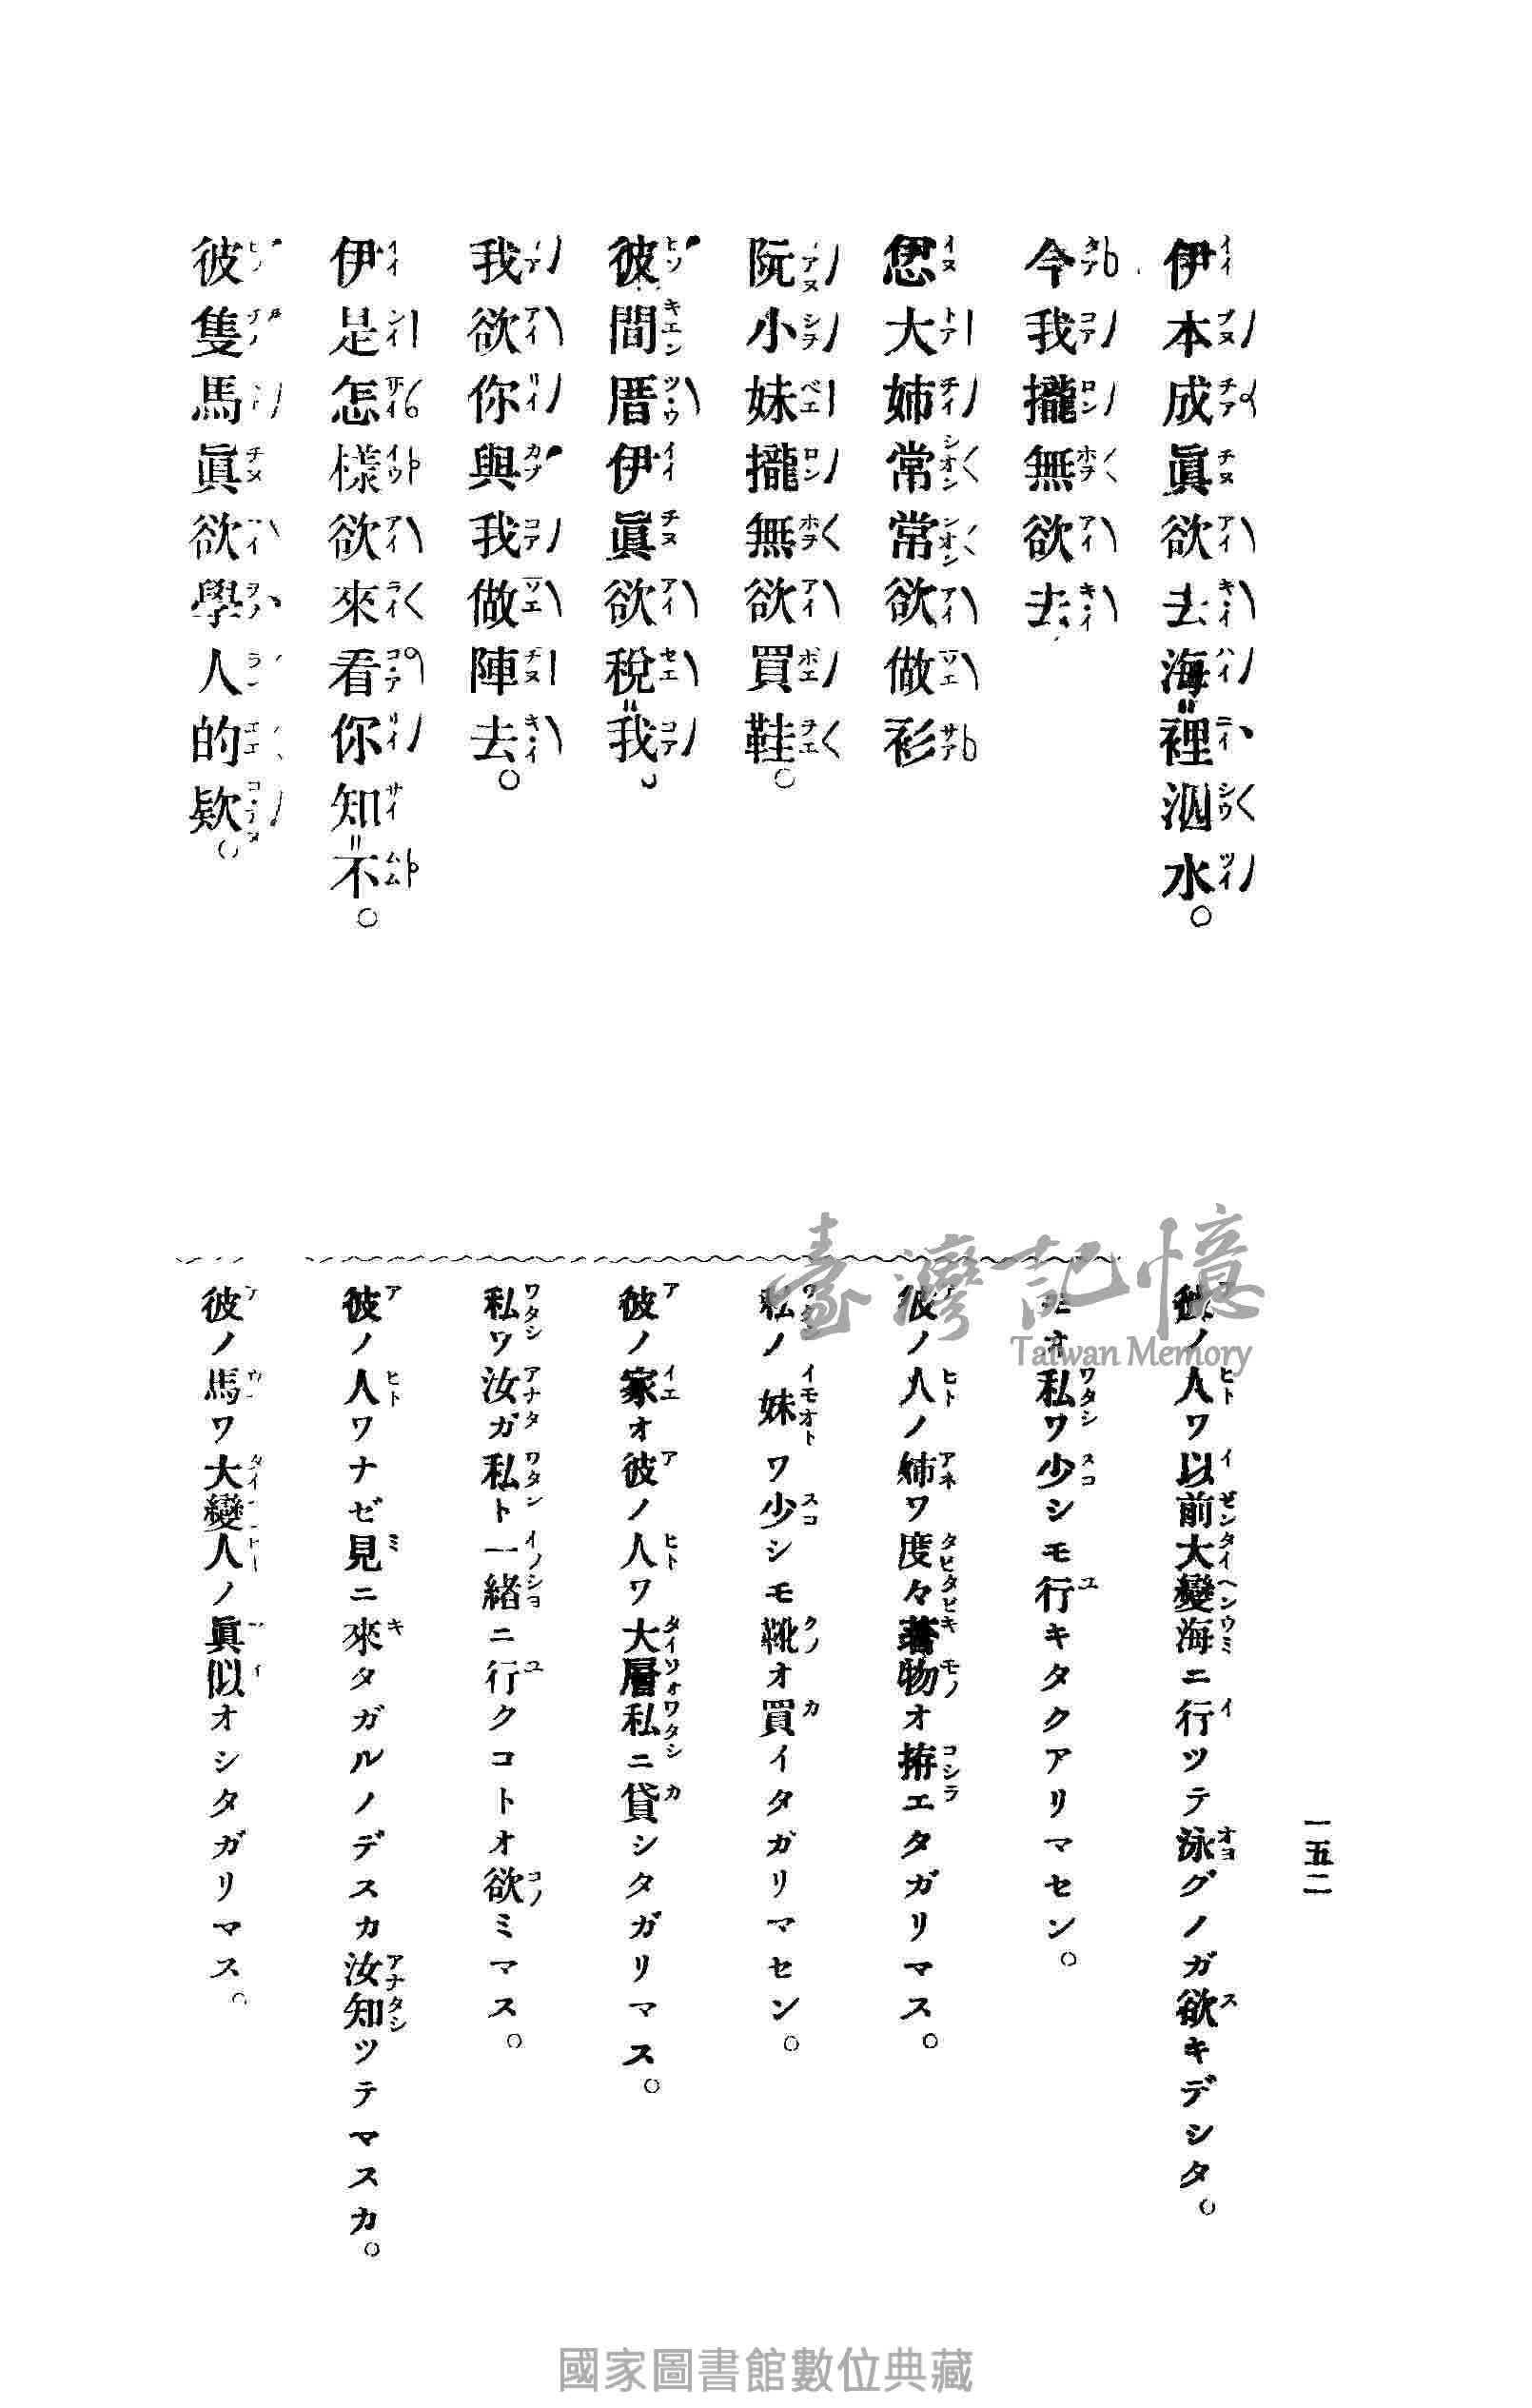 伊本成眞欲去海裡泅水。
今我攏無欲去
恁大姉常常欲做衫
阮小妹攏無欲買鞋。
彼間厝伊眞欲稅我。
我欲你與我做陣去。
伊是怎樣欲來看你知不。
彼隻馬眞欲學人的欵。
彼ノ人ワ以前大變海ニ行ツテ泳グノガ欲キデシタ。
モオ私ワ少シモ行キタクアリマセン。
彼ノ人ノ姉ワ度々著物オ拵エタガリマス。
私ノ妹ワ少シモ靴オ買イタガリマセン。
彼ノ家オ彼ノ人ワ大層私ニ貸シタガリマス。
私ワ汝ガ私ト一緒ニ行クコトオ欲ミマス。
彼ノ人ワナゼ見ニ來タガルノデスカ汝知ツテマスカ。
彼ノ馬ワ大變人ノ眞似オシタガリマス。
一五二
臺灣記憶
Taiwan Memory
國家圖書館數位典藏